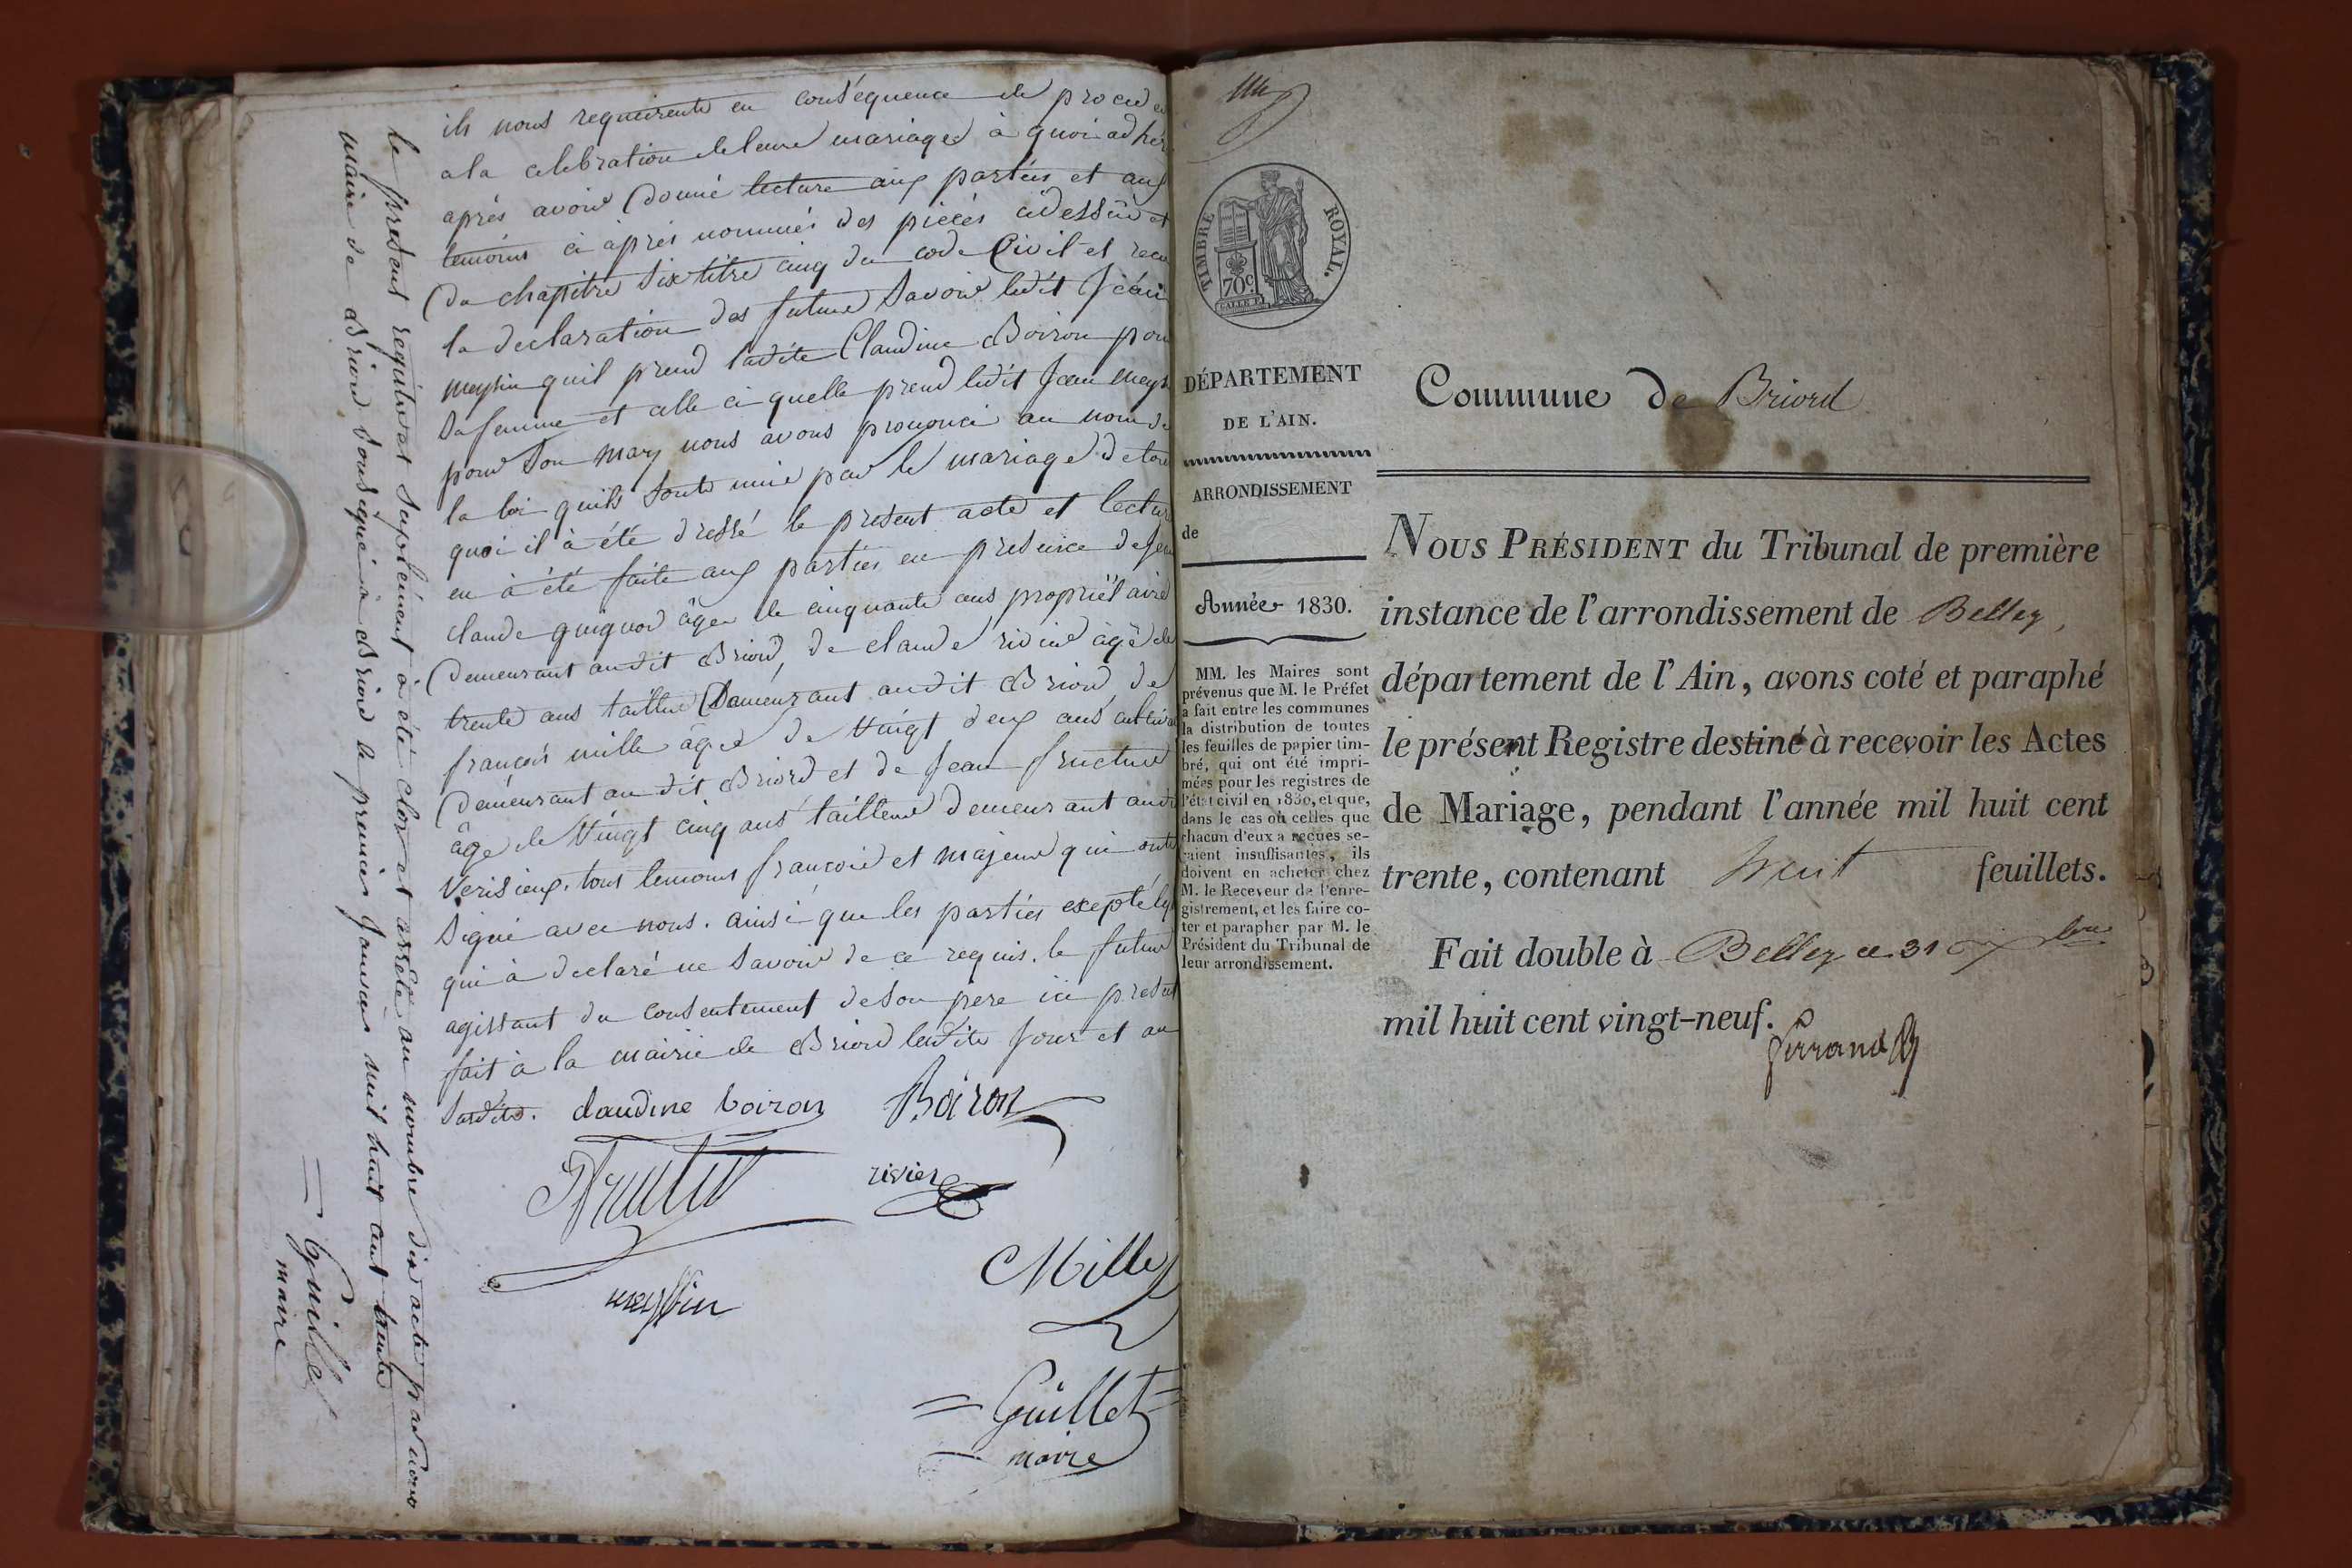 ils nous requeirente en conséquence de procede
a la celebration de leure mariages à quoi adhér
aprés avoir donné lecture aux partiés et aux
temoins ci àprés nommés des piécés ci dessus et
du chapitre Six titre cinq du code Civil et recu
la declaration des future Savoir ledit Jean
meyssin quil prend ladite Claudine Boiron pour
Sa femme et celle ci quelle prend ledit Jean meys
pour Son mary nous avons prononcé au nom de
la loi quils Sonts unie par le mariage de tou
quoi il à été dressé le present acte et lectur
en à été faite aux partiés en presence de Jean
claude guiguod âgée de cinquante ans propriétaire
Demeurant audit Briord, de claude rivier âgé de
trente ans tailleur Demeurant audit Briord de
françois mille âgée de Vingt deux ans cultiva
Demeurant au dit Briord et de Jean fructus
âge de Vingt cinq ans tailleur demeurant audi
Verisieux. tous temoins francoie et majeur qui onts
Signé avec nous. ainsi que les partiés exepté
qui à declaré ne Savoir de ce requis. le futur
agissant du consentement de Son pere ici present
fait à la mairie de Briord lesdits Jour et an
Susdits. claudine boiron Boiron
rivier
Mille
meyssin
= Guillet =
maire
le present registre et Suplément à été clos et arrêté au nombre dix acte par nous
maire de Briord Soussigné à Briord le premier Janvier mil huit cent trente
= Guillet
maire
TIMBRE ROYAL.
70c.
DÉPARTEMENT
DE L'AIN.
ARRONDISSEMENT
de
Année 1830.
MM. les Maires sont
prévenus que M. le Préfet
a fait entre les communes
la distribution de toutes
les feuilles de papier tim-
bré, qui ont été impri-
mées pour les registres de
l'état civil en 1830, et que,
dans le cas où celles que
chacun d'eux a reçues se-
raient insuffisantes, ils
doivent en acheter chez
M. le Receveur de l'enre-
gistrement, et les faire co-
ter et parapher par M. le
Président du Tribunal de
leur arrondissement.
Commune de Briord
NOUS PRÉSIDENT du Tribunal de première
instance de l'arrondissement de Belley,
département de l'Ain, avons coté et paraphé
le présent Registre destiné à recevoir les Actes
de Mariage, pendant l'année mil huit cent
trente, contenant huit feuillets.
Fait double à Belley ce 31 Xbre
mil huit cent vingt-neuf.